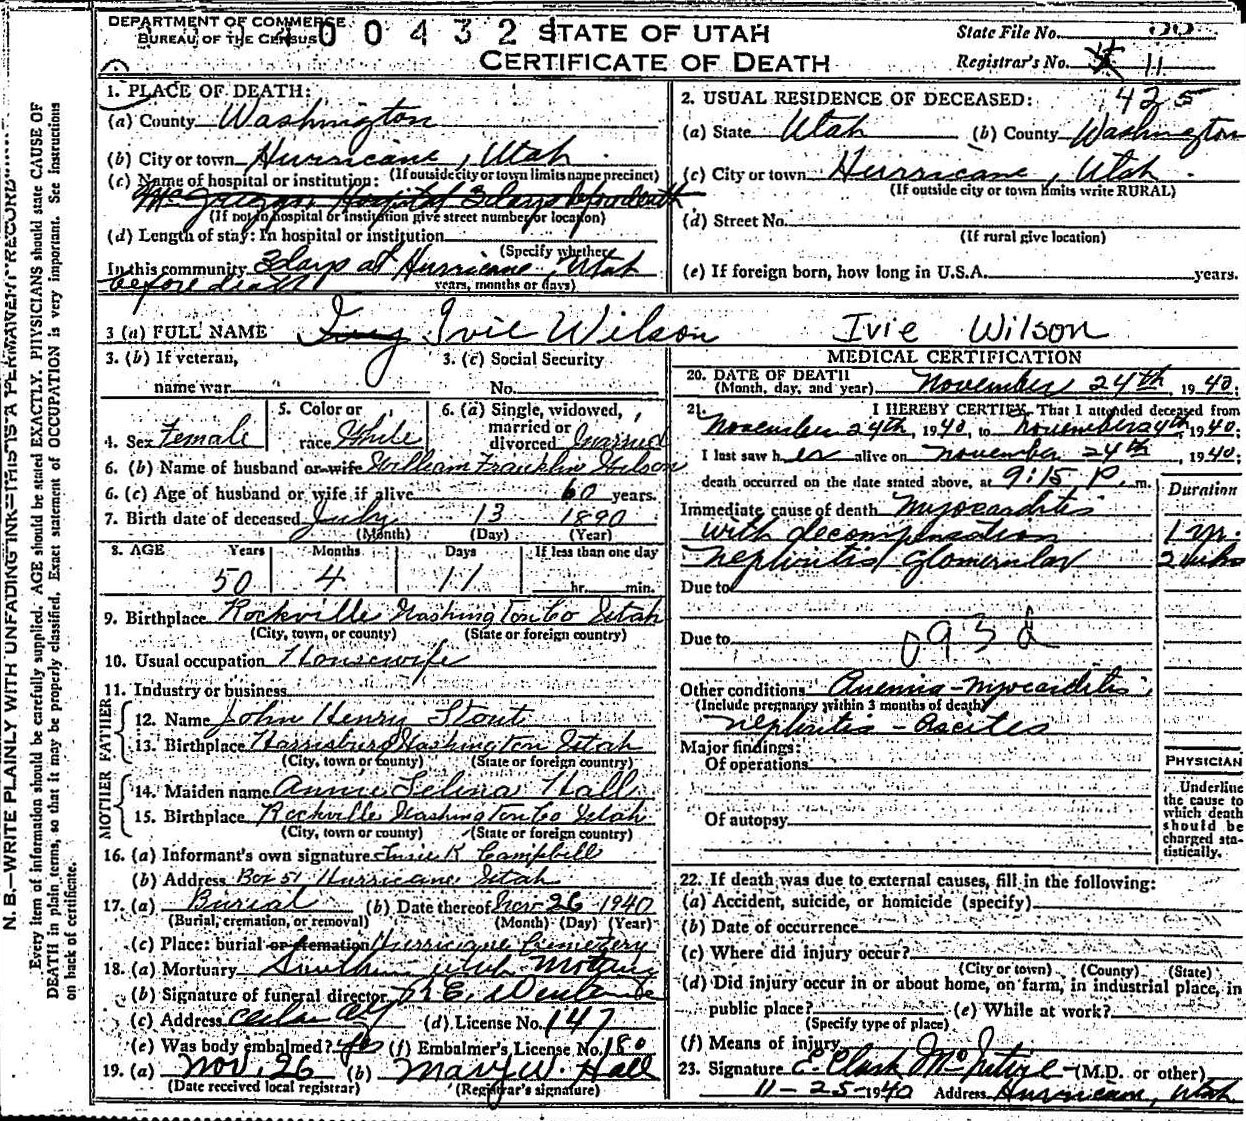 DEPARTMENT OF COMMERCE
BUREAU OF THE CENSUS
0 0 4 3 2
STATE OF UTAH
CERTIFICATE OF DEATH
State File No.
Registrar's No. 11
425
N. B.—WRITE PLAINLY WITH UNFADING INK—THIS IS A PERMANENT RECORD
Every item of information should be carefully supplied. AGE should be stated EXACTLY. PHYSICIANS should state CAUSE OF
DEATH in plain terms, so that it may be properly classified. Exact statement of OCCUPATION is very important. See instructions
on back of certificate.
1. PLACE OF DEATH:
(a) County Washington
(b) City or town Hurricane, Utah
(If outside city or town limits name precinct)
(c) Name of hospital or institution:
Hospital 3 days before death
(If not in hospital or institution give street number or location)
(d) Length of stay: In hospital or institution
(Specify whether
In this community 3 days at Hurricane, Utah
before death
years, months or days)
2. USUAL RESIDENCE OF DECEASED:
(a) State Utah (b) County Washington
(c) City or town Hurricane, Utah
(If outside city or town limits write RURAL)
(d) Street No.
(If rural give location)
(e) If foreign born, how long in U.S.A. years.
3 (a) FULL NAME Ivie Wilson Ivie Wilson
3. (b) If veteran, name war
3. (c) Social Security No.
4. Sex Female
5. Color or race White
6. (a) Single, widowed, married or divorced Married
6. (b) Name of husband or wife William Franklin Wilson
6. (c) Age of husband or wife if alive 60 years.
7. Birth date of deceased July 13 1890
(Month) (Day) (Year)
8. AGE Years Months Days If less than one day
50 4 11 hr. min.
9. Birthplace Rockville Washington Co Utah
(City, town, or county) (State or foreign country)
10. Usual occupation Housewife
11. Industry or business
FATHER
12. Name John Henry Stout
13. Birthplace Harrisburg Washington Utah
(City, town or county) (State or foreign country)
MOTHER
14. Maiden name Annie Selina Hall
15. Birthplace Rockville Washington Co Utah
(City, town or county) (State or foreign country)
16. (a) Informant's own signature K Campbell
(b) Address Box 51 Hurricane Utah
17. (a) Burial (b) Date thereof Nov 26 1940
(Burial, cremation, or removal) (Month) (Day) (Year)
(c) Place: burial or cremation Hurricane Cemetery
18. (a) Mortuary Southern Utah Mortuary
(b) Signature of funeral director
(c) Address Cedar City (d) License No. 147
(e) Was body embalmed? Yes (f) Embalmer's License No. 180
19. (a) Nov. 26 (b) Mary W. Hall
(Date received local registrar) (Registrar's signature)
MEDICAL CERTIFICATION
20. DATE OF DEATH
(Month, day, and year) November 24th, 1940;
21. I HEREBY CERTIFY, That I attended deceased from
November 24th, 1940, to November 24th, 1940;
I last saw her alive on November 24th, 1940;
death occurred on the date stated above, at 9:15 P. m.
Duration
Immediate cause of death Myocarditis
with decompensation 1 yr.
Nephritis Glomerular 2 wks
Due to
Due to
093d
Other conditions Anemia - Myocarditis
(Include pregnancy within 3 months of death)
Nephritis - Ascites
Major findings:
Of operations
Of autopsy
PHYSICIAN
Underline
the cause to
which death
should be
charged sta-
tistically.
22. If death was due to external causes, fill in the following:
(a) Accident, suicide, or homicide (specify)
(b) Date of occurrence
(c) Where did injury occur?
(City or town) (County) (State)
(d) Did injury occur in or about home, on farm, in industrial place, in
public place? (e) While at work?
(Specify type of place)
(f) Means of injury
23. Signature E. Clark McIntire (M.D. or other)
11-25-1940 Address Hurricane, Utah